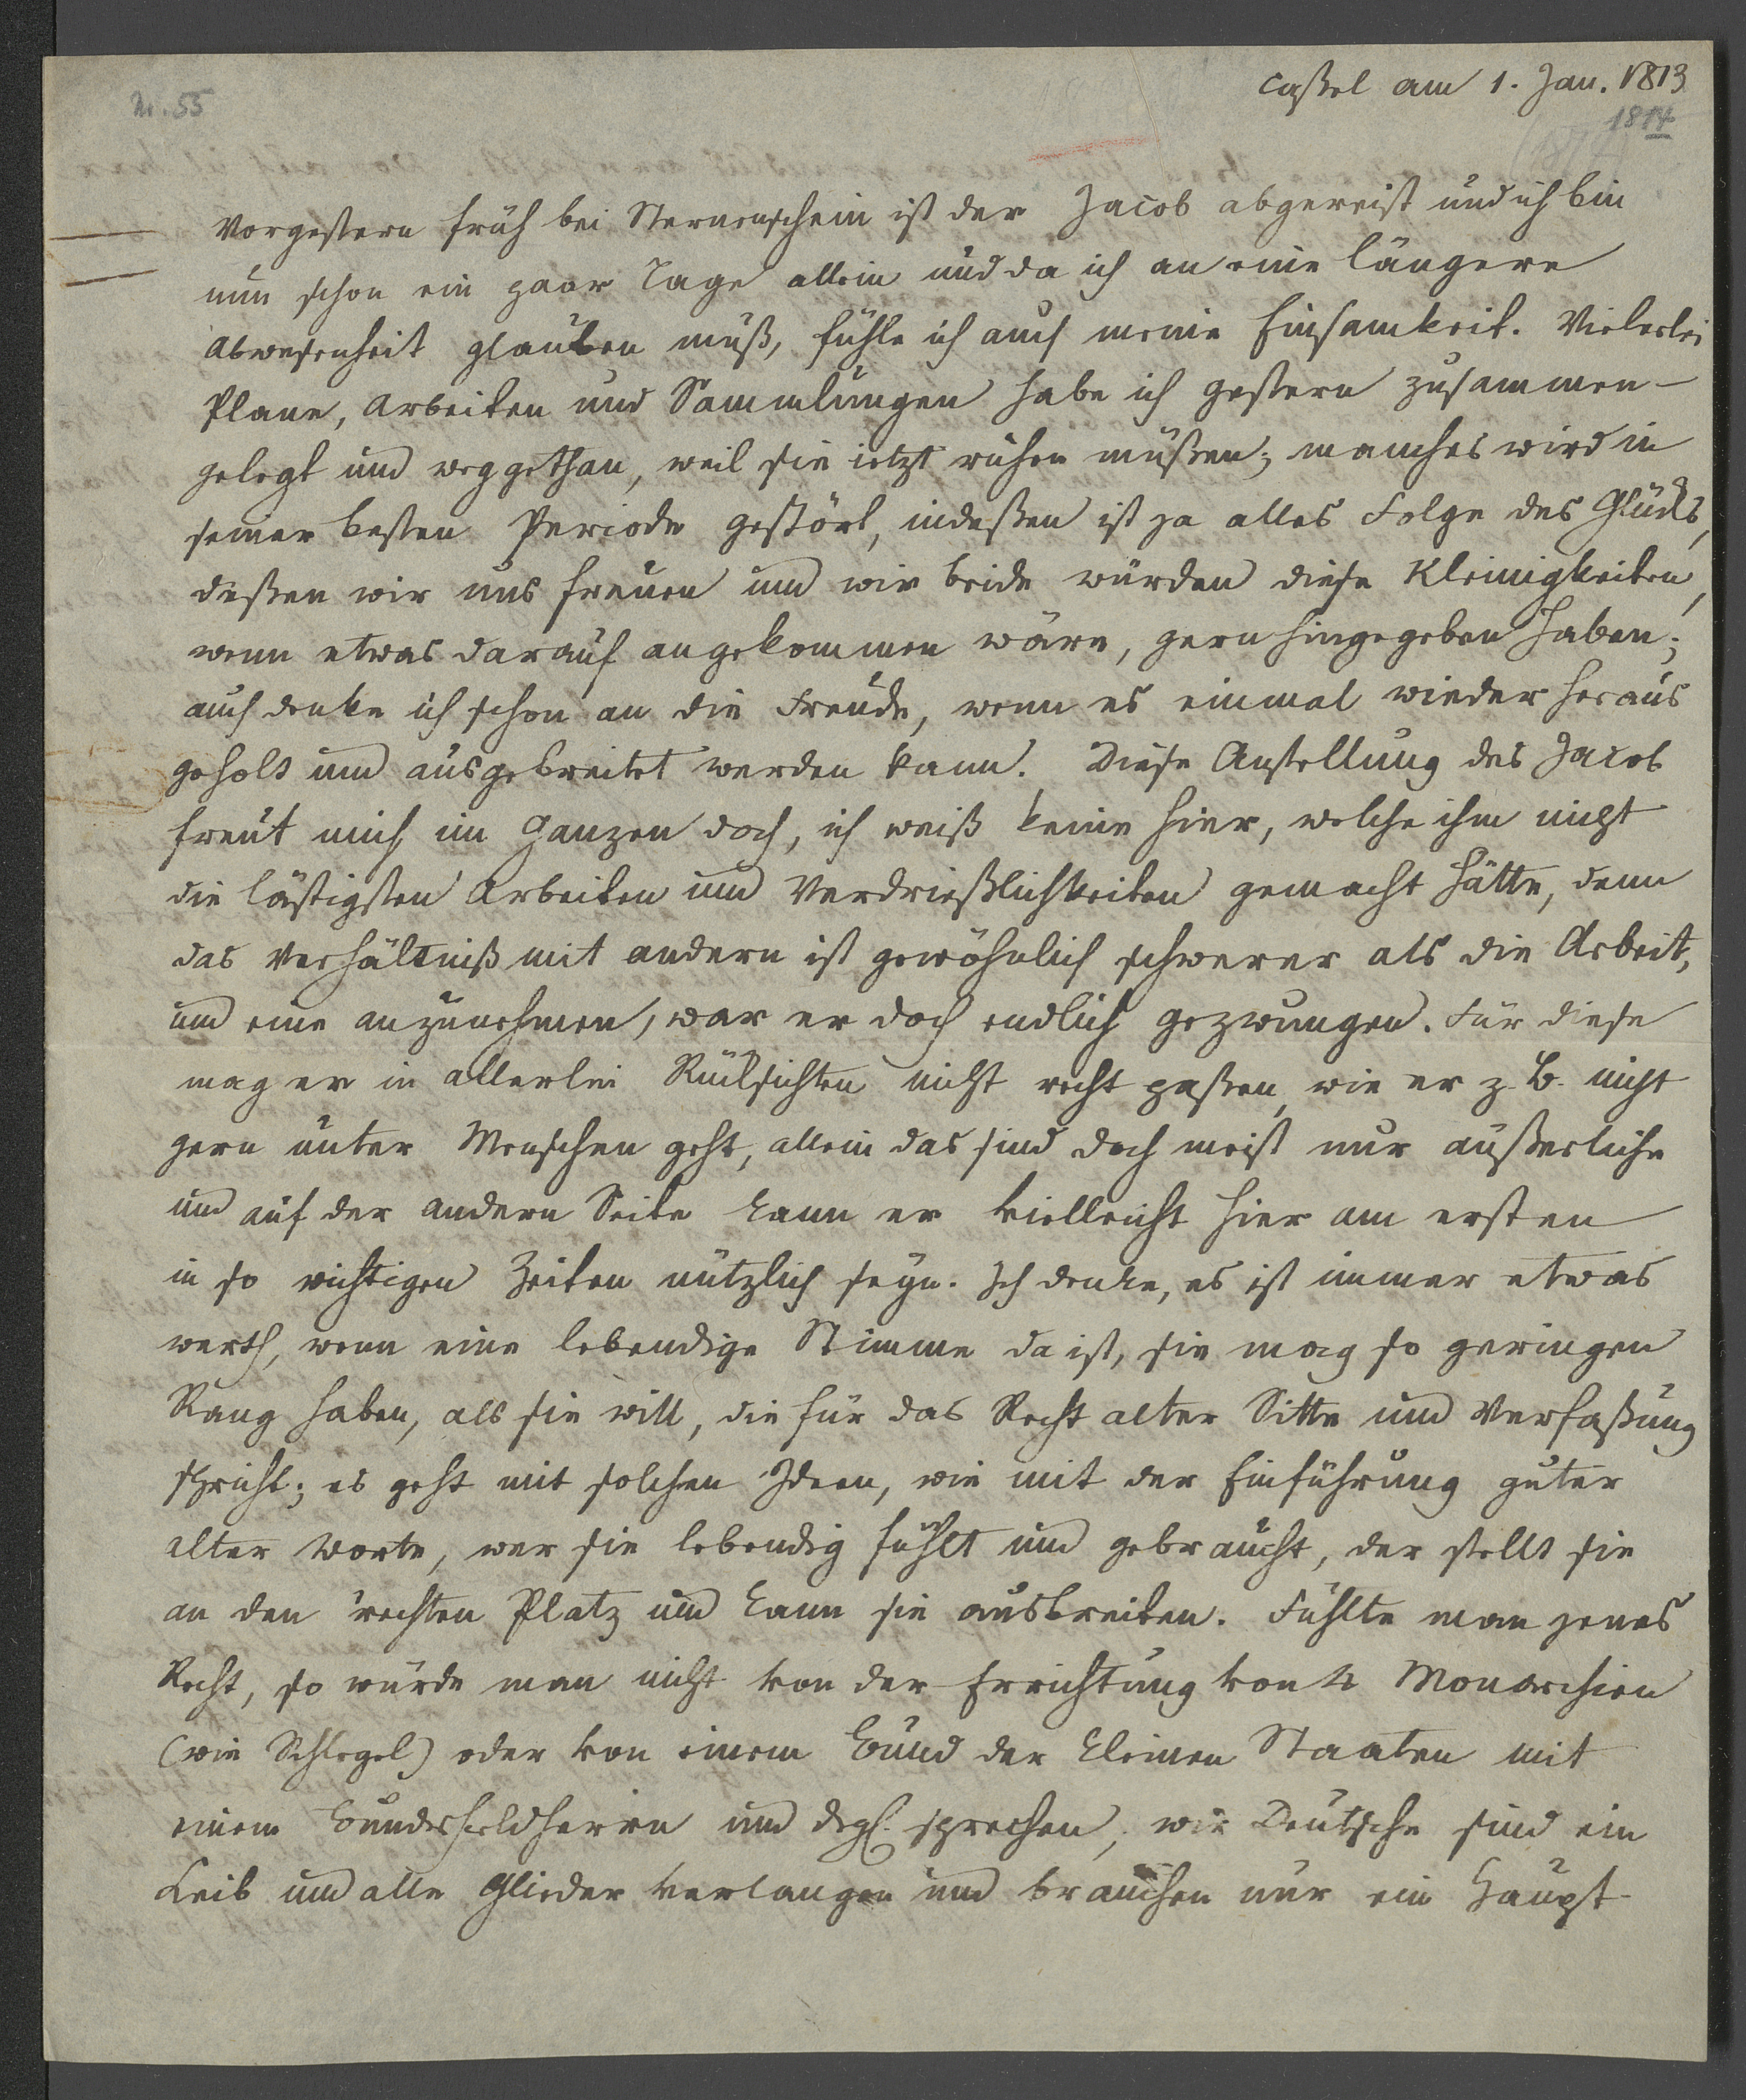 Nr. 55
Caßel am 1. Jan. 1813
1814
Vorgestern früh bei Sternenschein ist der Jacob abgereist und ich bin
nun schon ein paar Tage allein und da ich an eine längere
Abwesenheit glauben muß, fühle ich auch meine Einsamkeit. Vielerlei
Plane, Arbeiten und Sammlungen habe ich gestern zusammen-
gelegt und weggethan, weil sie jetzt ruhen müßen; manches wird in
seiner besten Periode gestört, indeßen ist ja alles Folge des Glücks,
deßen wir uns freuen und wir beide würden diese Kleinigkeiten,
wenn etwas darauf angekommen wäre, gern hingegeben haben;
auch denke ich schon an die Freude, wenn es einmal wieder heraus
geholt und ausgebreitet werden kann. Diese Anstellung des Jacob
freut mich im Ganzen doch, ich weiß keine hier, welche ihm nicht
die lästigsten Arbeiten und Verdrießlichkeiten gemacht hätte, denn
das Verhältniß mit andern ist gewöhnlich schwerer als die Arbeit,
und eine anzunehmen, war er doch endlich gezwungen. Für diese
mag er in allerlei Rücksichten nicht recht paßen, wie er z. B. nicht
gern unter Menschen geht, allein das sind doch meist nur äußerliche
und auf der andern Seite kann er vielleicht hier am ersten
in so wichtigen Zeiten nützlich seyn. Ich denke, es ist immer etwas
werth, wenn eine lebendige Stimme da ist, sie mag so geringen
Rang haben, als sie will, die für das Recht alter Sitte und Verfaßung
spricht; es geht mit solchen Ideen, wie mit der Einführung guter
alter Worte, wer sie lebendig fühlt und gebraucht, der stellt sie
an den rechten Platz und kann sie ausbreiten. Fühlte man jenes
Recht, so würde man nicht von der Errichtung von 4 Monarchien
(wie Schlegel) oder von einem Bund der kleinen Staaten mit
einem Bundesfeldherrn und dergl. sprechen, wir Deutsche sind ein
Leib und alle Glieder verlangen und brauchen nur ein Haupt-